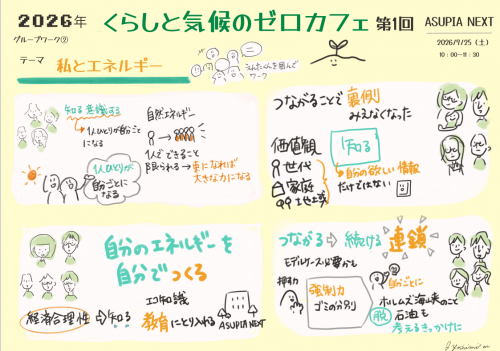 2026年 くらしと気候のゼロカフェ 第1回 ASUPIA NEXT
グループワーク②
2026/7/25（土）
10:00-11:30
テーマ 私とエネルギー
えんたくんを囲んで
ワーク
知る 意識する
1人ひとりが自分ごと
になる
自然エネルギー
1人でできること
限られる → 束になれば
大きな力になる
1人ひとりが
自分ごとに
なる
つながることで 裏側
みえなくなった
価値観
世代
家庭
土地工事
知る
自分の欲しい情報
だけではない
自分のエネルギーを
自分でつくる
経済合理性 知る
エコ知識
教育にとり入れる
ASUPIA NEXT
つながる 続ける 連鎖
モデルケース必要かも
押す力
強制力
ゴミの分別
自分ごとに
ホルムズ海峡のこと
脱 石油も
考えるきっかけに